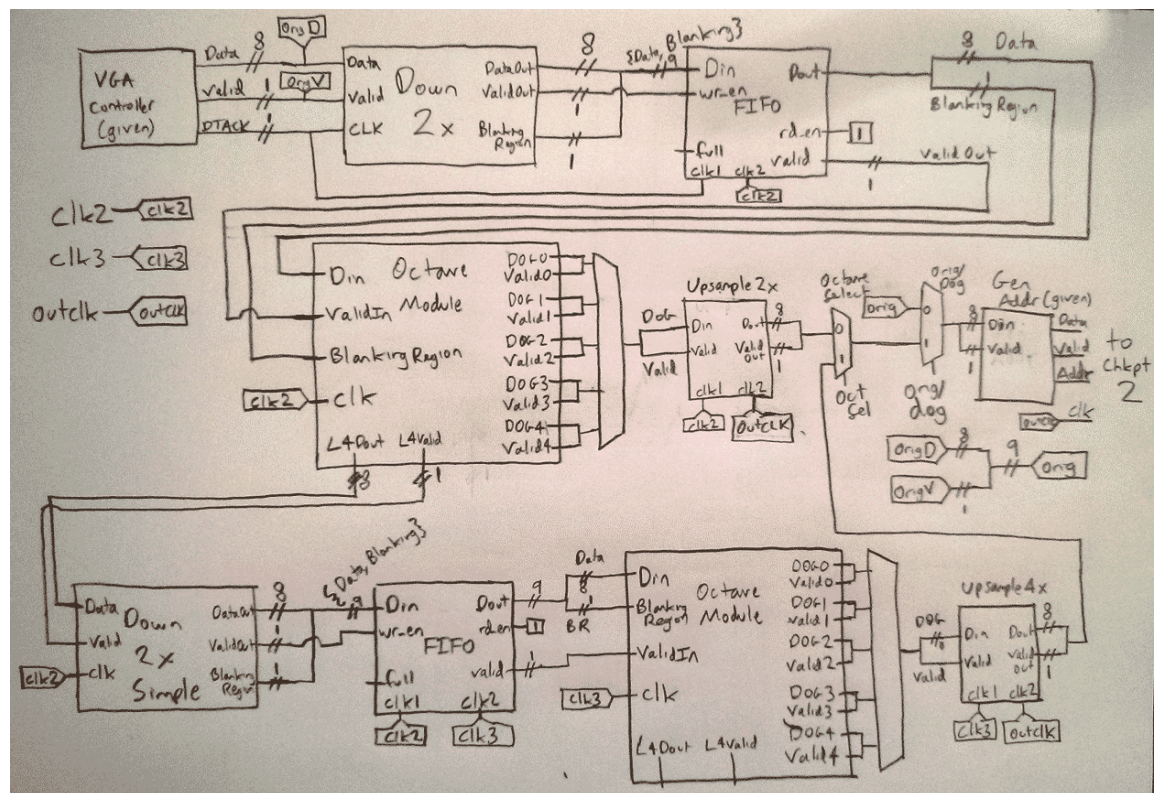 VGA
Controller
(given)
Data
8
Orig D
Valid
1
OrigV
DTACK
1
Data
Valid
CLK
Down
2x
DataOut
ValidOut
Blanking
Region
8
1
1
{Data, Blanking}
9
Din
wr-en
FIFO
full
clk1
clk2
clk2
Dout
rd_en
1
valid
8
Data
1
Blanking Region
Valid Out
1
clk2
clk2
clk3
clk3
outclk
outclk
Din
ValidIn
Blanking Region
clk
clk2
Octave
Module
L4Dout
L4Valid
8
1
DOG0
Valid0
DOG1
Valid1
DOG2
Valid2
DOG3
Valid3
DOG4
Valid4
DOG
Valid
Upsample 2x
Din
Valid
Dout
Valid
out
8
1
clk1
clk2
clk2
OutCLK
Octave
Select
0
1
Oct
Sel
orig
Orig/
Dog
0
1
Orig/
dog
8
1
Gen
Addr (given)
Din
Valid
Data
Valid
Addr
to
Chkpt
2
outclk
clk
OrigD
8
OrigV
1
9
Orig
Data
Valid
clk
clk2
Down
2x
Simple
DataOut
ValidOut
Blanking
Region
8
1
1
{Data, Blanking}
9
Din
wr-en
FIFO
full
clk1
clk2
clk2
clk3
Dout
rd_en
1
valid
9
1
Data
8
1
BR
Din
Blanking
Region
ValidIn
clk
clk3
Octave
Module
L4Dout
L4Valid
DOG0
Valid0
DOG1
Valid1
DOG2
Valid2
DOG3
Valid3
DOG4
Valid4
DOG
Valid
Upsample 4x
Din
Valid
Dout
valid
out
8
1
clk1
clk2
clk3
outclk